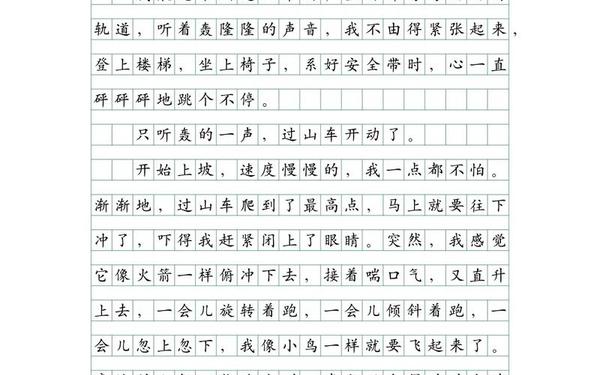 轨道，听着轰隆隆的声音，我不由得紧张起来，
登上楼梯，坐上椅子，系好安全带时，心一直
砰砰砰地跳个不停。
只听轰的一声，过山车开动了。
开始上坡，速度慢慢的，我一点都不怕。
渐渐地，过山车爬到了最高点，马上就要往下
冲了，吓得我赶紧闭上了眼睛。突然，我感觉
它像火箭一样俯冲下去，接着喘口气，又直升
上去，一会儿旋转着跑，一会儿倾斜着跑，一
会儿忽上忽下，我像小鸟一样就要飞起来了。